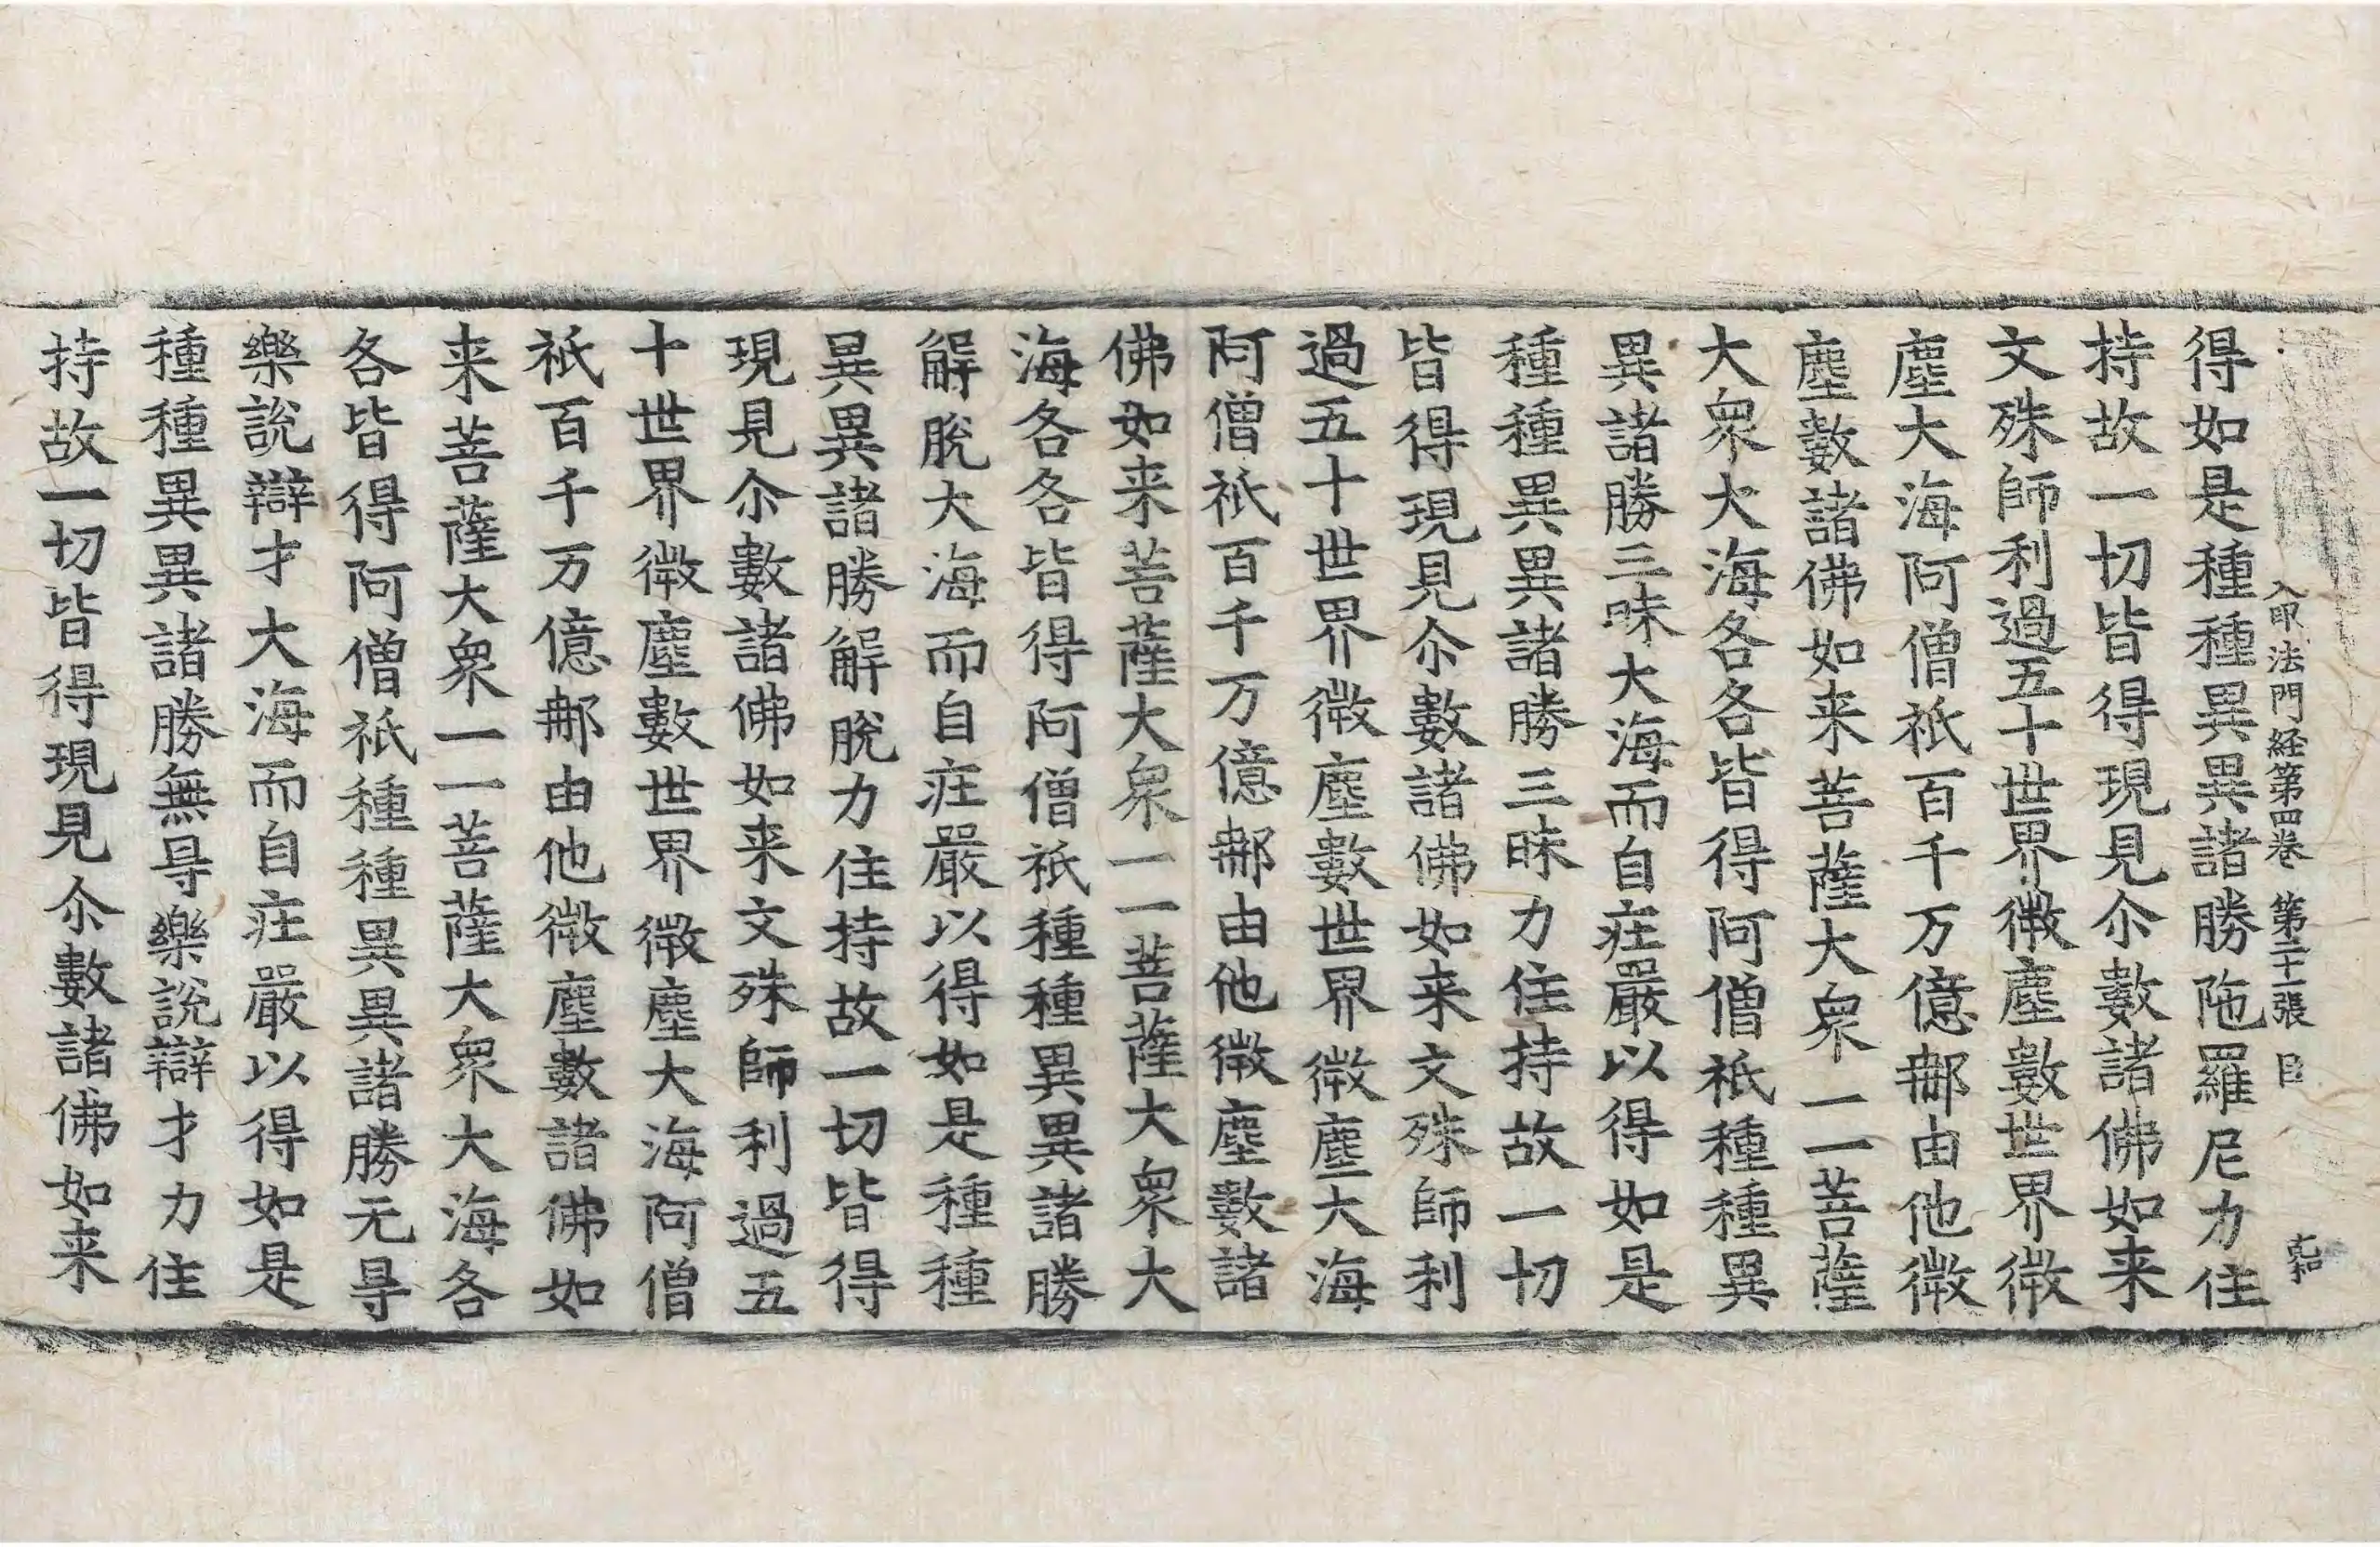 入印法門経第四卷 第二十一張 臣
得如是種種異異諸勝陁羅尼力住
持故一切皆得現見尒數諸佛如来
文殊師利過五十世界微塵數世界微
塵大海阿僧祇百千万億那由他微
塵數諸佛如来菩薩大衆一一菩薩
大衆大海各各皆得阿僧祇種種異
異諸勝三昧大海而自莊嚴以得如是
種種異異諸勝三昧力住持故一切
皆得現見尒數諸佛如来文殊師利
過五十世界微塵數世界微塵大海
阿僧祇百千万億那由他微塵數諸
佛如来菩薩大衆一一菩薩大衆大
海各各皆得阿僧祇種種異異諸勝
解脫大海而自莊嚴以得如是種種
異異諸勝解脫力住持故一切皆得
現見尒數諸佛如来文殊師利過五
十世界微塵數世界微塵大海阿僧
祇百千万億那由他微塵數諸佛如
来菩薩大衆一一菩薩大衆大海各
各皆得阿僧祇種種異異諸勝无㝵
樂説辯才大海而自莊嚴以得如是
種種異異諸勝無㝵樂説辯才力住
持故一切皆得現見尒數諸佛如来